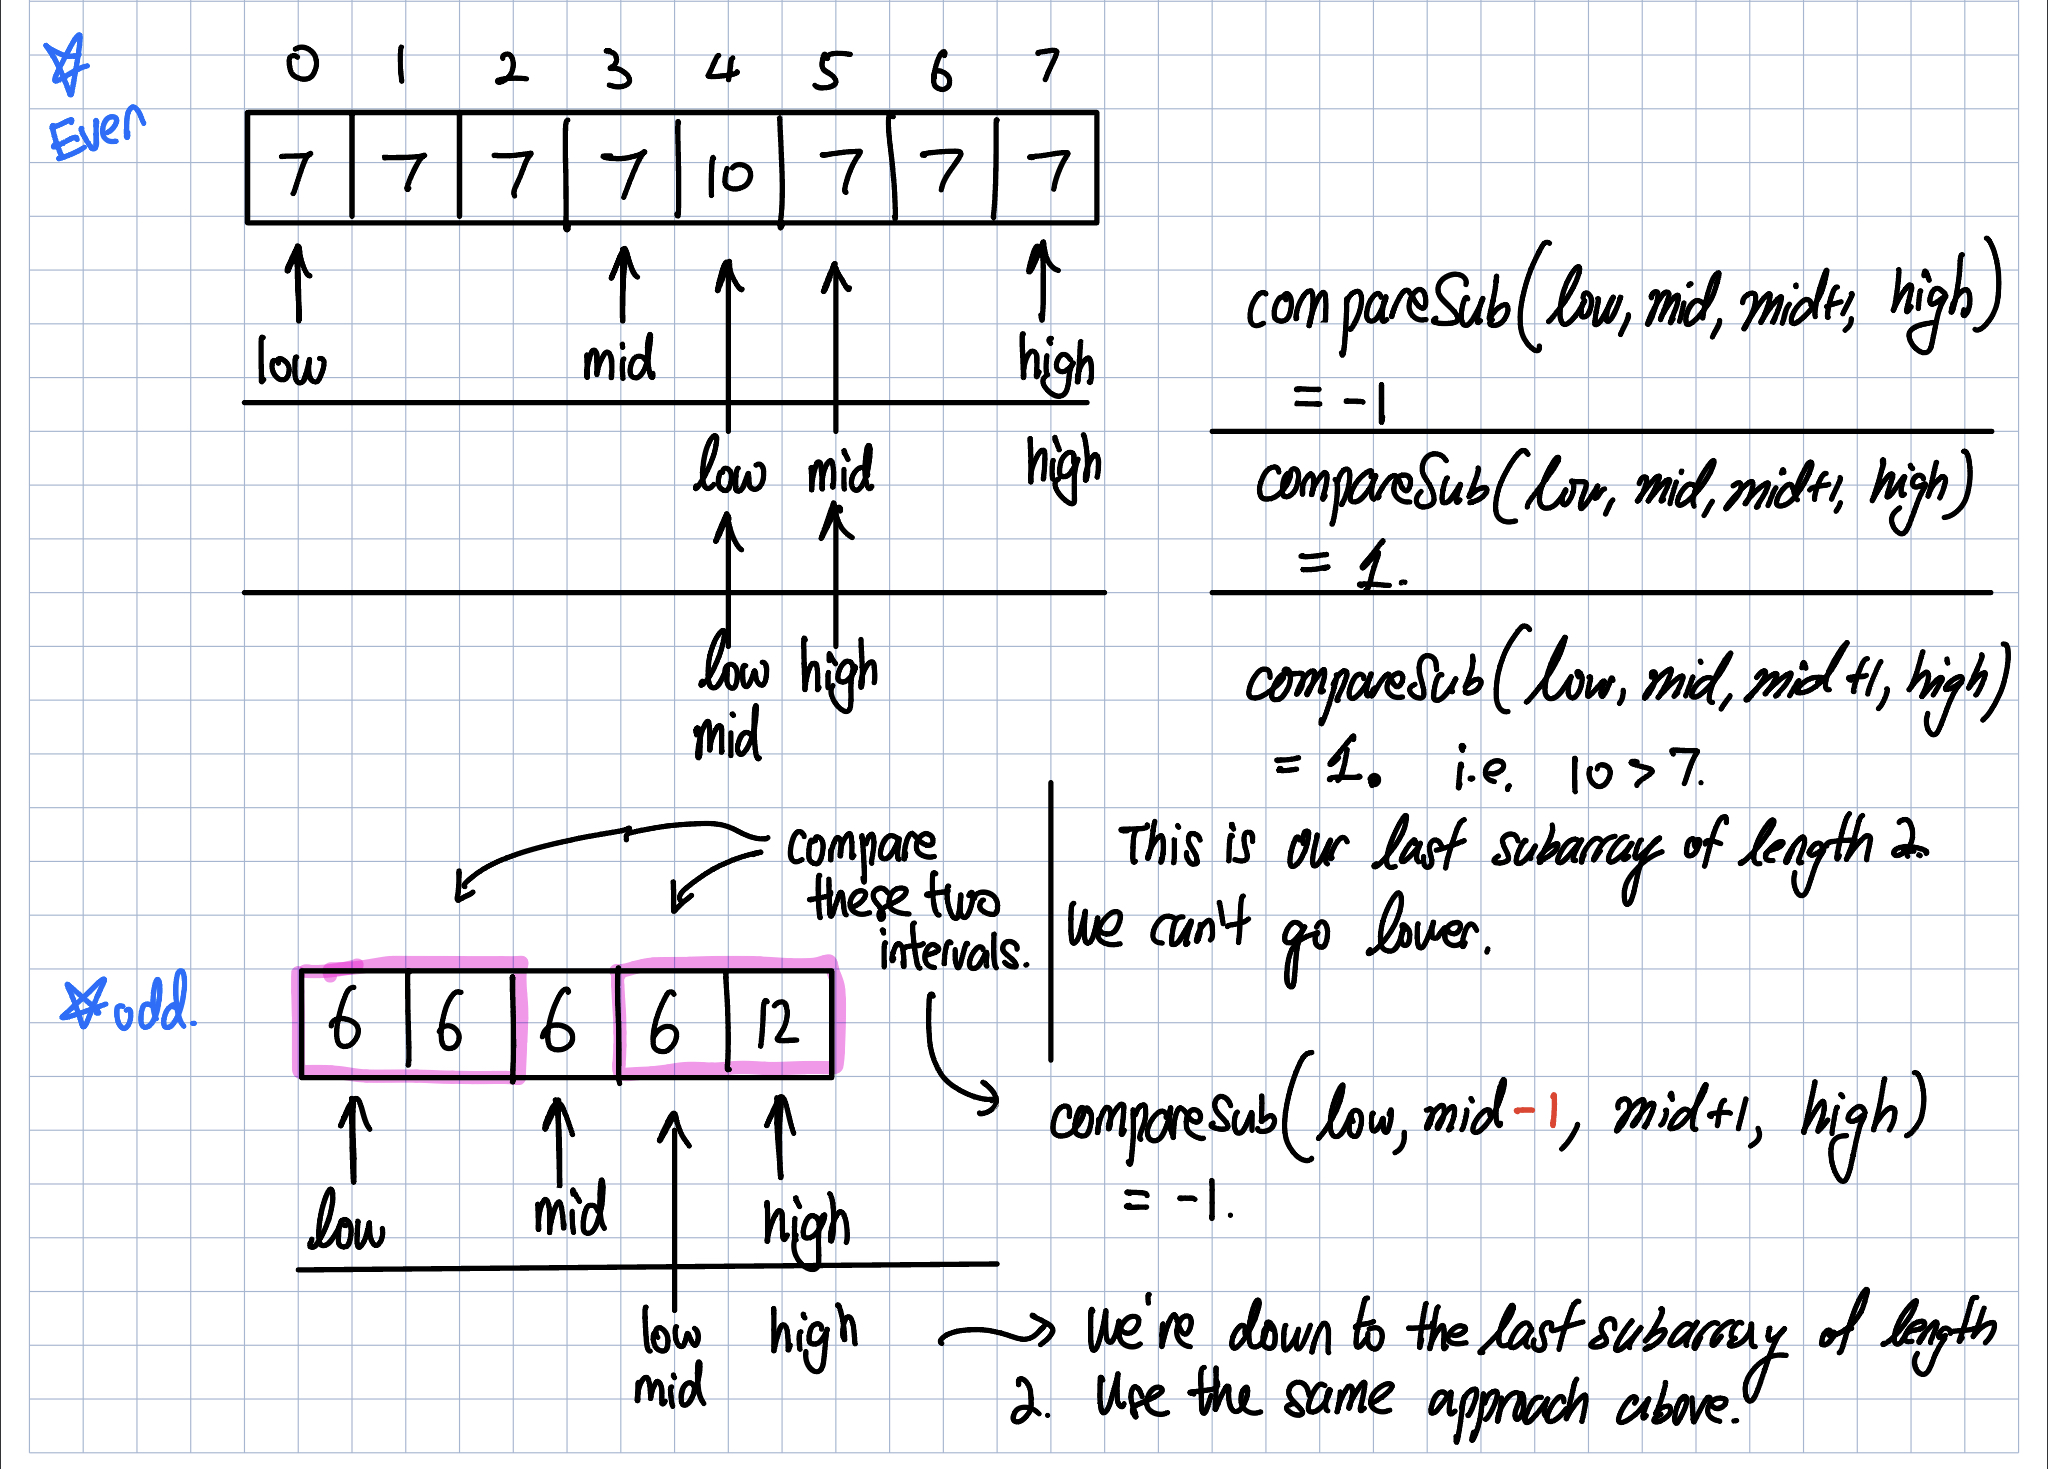 0 1 2 3 4 5 6 7
Even
7 7 7 7 10 7 7 7
low mid high
low mid high
low high
mid
compareSub(low, mid, mid+1, high)
= -1
compareSub(low, mid, mid+1, high)
= 1.
compareSub(low, mid, mid+1, high)
= 1. i.e. 10 > 7.
This is our last subarray of length 2.
We can't go lower.
compare
these two
intervals.
odd.
6 6 6 6 12
low mid high
compareSub(low, mid-1, mid+1, high)
= -1.
low high
mid
We're down to the last subarray of length
2. Use the same approach above.